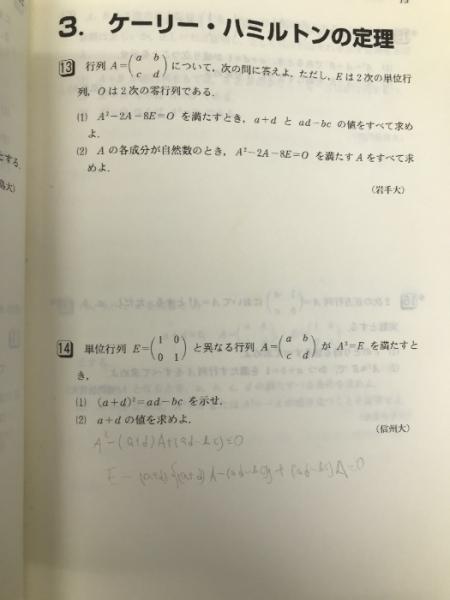 3. ケーリー・ハミルトンの定理
13 行列 A=(a b c d) について, 次の問に答えよ. ただし, E は2次の単位行
列, O は2次の零行列である.
(1) A²-2A-8E=O を満たすとき, a+d と ad-bc の値をすべて求め
よ.
(2) A の各成分が自然数のとき, A²-2A-8E=O を満たす A をすべて求
めよ.
(岩手大)
14 単位行列 E=(1 0 0 1) と異なる行列 A=(a b c d) が A³=E を満たすと
き,
(1) (a+d)²=ad-bc を示せ.
(2) a+d の値を求めよ.
(信州大)
A²-(a+d)A+(ad-bc)=0
E-(a+d){(a+d)A-(ad-bc)}+(ad-bc)A=0